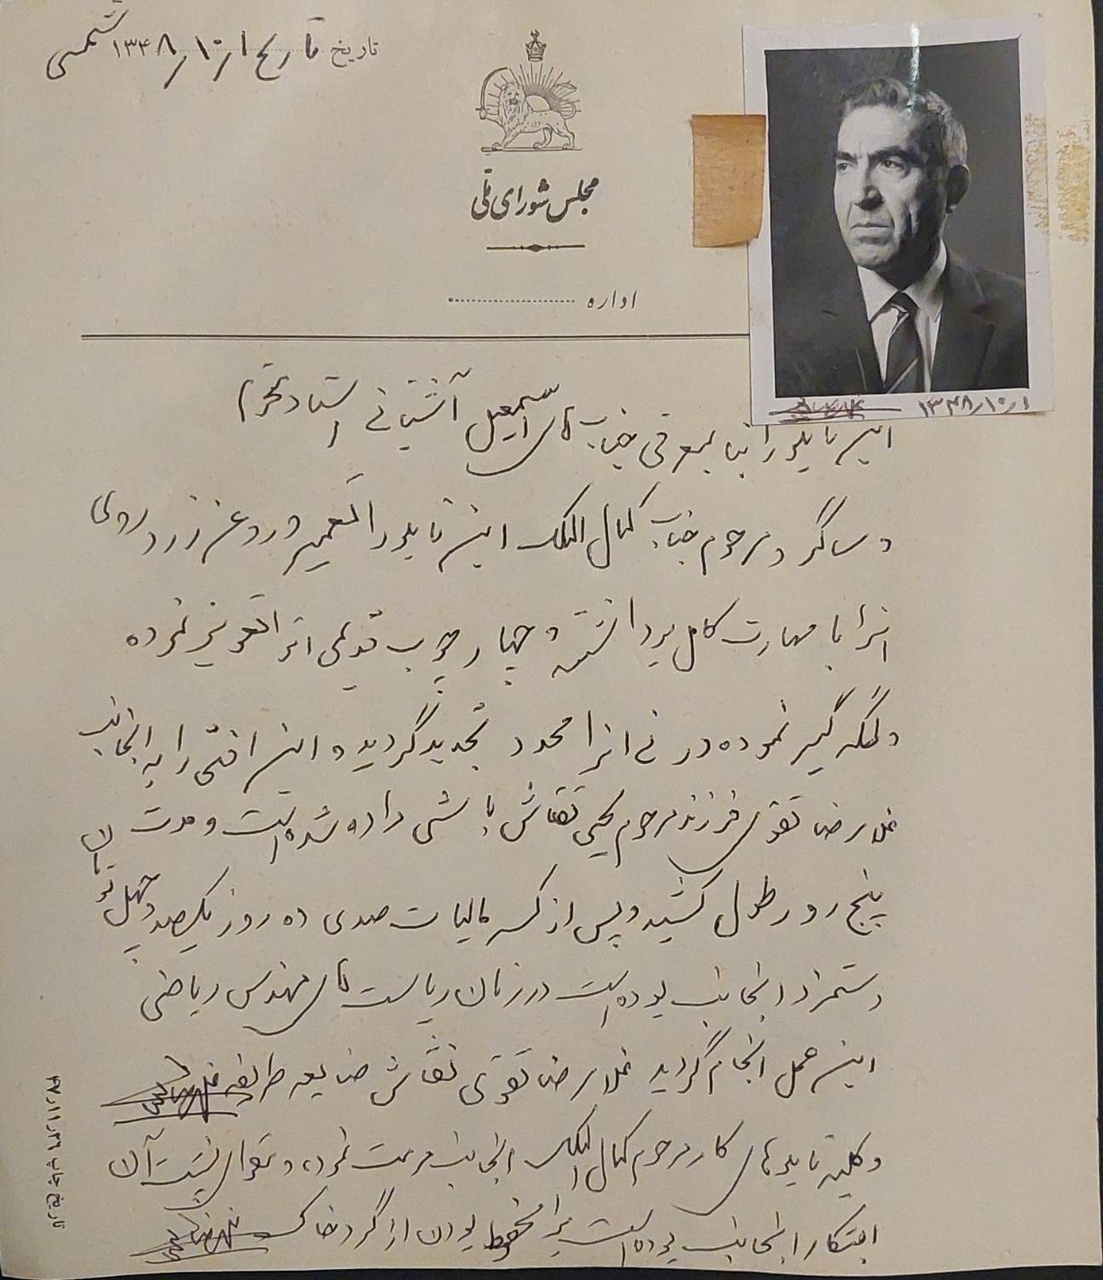 تاریخ تاریخ ۱۳۴۸/۱۰/۱ شمسی
مجلس شورای ملی
اداره
۱۳۴۸/۱۰/۱
این تابلو را بنا بمعرفی جناب آقای اسمعیل آشتیانی استاد محترم
و شاگرد مرحوم جناب کمال الملک این تابلو را تعمیر و روغن زرد روی
انرا با مهارت کامل برداشته و چهار چوب قدیمی انرا تعویض نموده
و نموده انرا تجدید گردید و این را به اینجانب
غلامرضا تقوی فرزند مرحوم یحیی نقاش باشی داده شده است و مدت
پنج روز طول کشید و پس از کسر مالیات صدی ده روز یکصد و چهل تومان
دستمزد اینجانب بوده است در زمان ریاست آقای مهندس ریاضی
این عمل انجام گردید غلامرضا تقوی نقاش
و کلیه تابلوهای کار مرحوم کمال الملک اینجانب مرمت نموده و پشت آن
ابتکار اینجانب بوده است برای محفوظ بودن از گرد خاک
تاریخ چاپ ۴۷/۱۱/۲۹